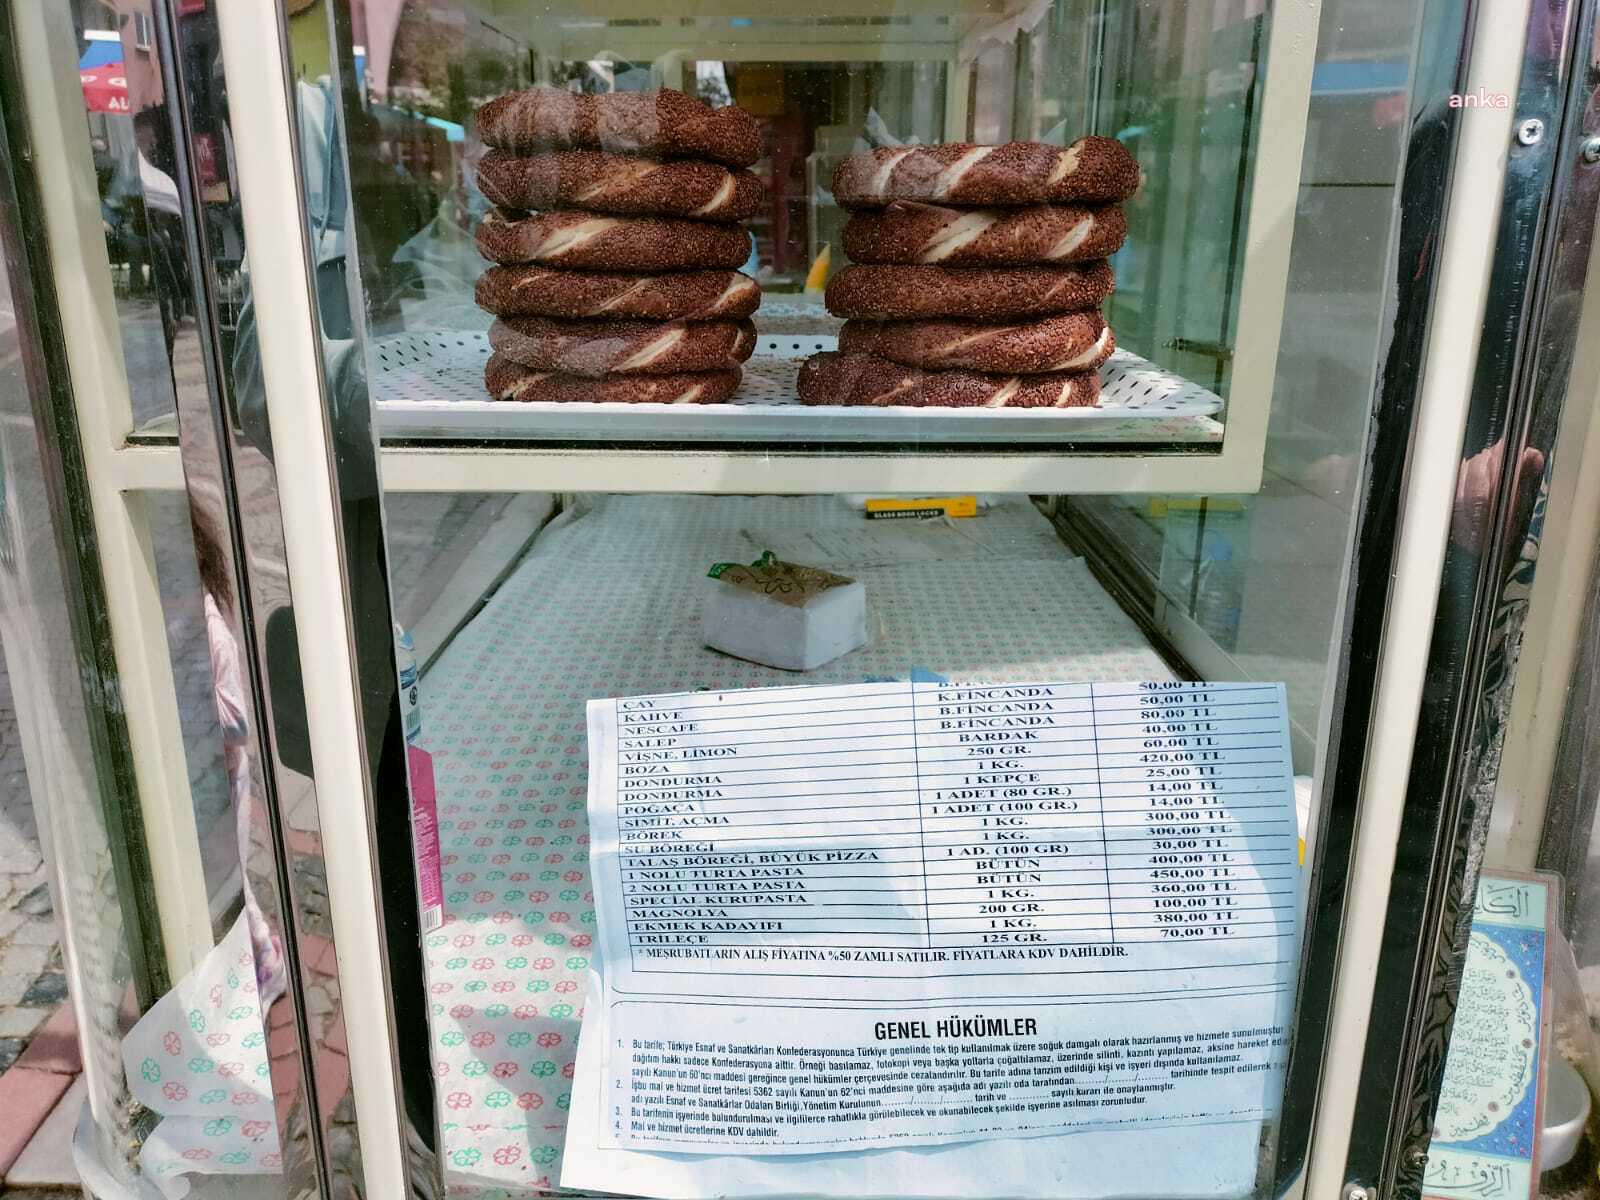 ÇAY
KAHVE K.FİNCANDA 50,00 TL
NESCAFE B.FİNCANDA 50,00 TL
SALEP B.FİNCANDA 80,00 TL
VİŞNE, LİMON BARDAK 40,00 TL
BOZA 250 GR. 60,00 TL
DONDURMA 1 KG. 420,00 TL
DONDURMA 1 KEPÇE 25,00 TL
POĞAÇA 1 ADET (80 GR.) 14,00 TL
SİMİT, AÇMA 1 ADET (100 GR.) 14,00 TL
BÖREK 1 KG. 300,00 TL
SU BÖREĞİ 1 KG. 300,00 TL
TALAŞ BÖREĞİ, BÜYÜK PİZZA 1 AD. (100 GR) 30,00 TL
1 NOLU TURTA PASTA BÜTÜN 400,00 TL
2 NOLU TURTA PASTA BÜTÜN 450,00 TL
SPECİAL KURUPASTA 1 KG. 360,00 TL
MAGNOLYA 200 GR. 100,00 TL
EKMEK KADAYIFI 1 KG. 380,00 TL
TRİLEÇE 125 GR. 70,00 TL
* MEŞRUBATLARIN ALIŞ FİYATINA %50 ZAMLI SATILIR. FİYATLARA KDV DAHİLDİR.
GENEL HÜKÜMLER
1. Bu tarife; Türkiye Esnaf ve Sanatkârları Konfederasyonunca Türkiye genelinde tek tip kullanılmak üzere soğuk damgalı olarak hazırlanmış ve hizmete sunulmuştur
dağıtım hakkı sadece Konfederasyona aittir. Örneği basılamaz, fotokopi veya başka yollarla çoğaltılamaz, üzerinde silinti, kazıntı yapılamaz, aksine hareket eden
sayılı Kanun'un 60'ncı maddesi gereğince genel hükümler çerçevesinde cezalandırılır. Bu tarife adına tanzim edildiği kişi ve işyeri dışında kullanılamaz.
2. İşbu mal ve hizmet ücret tarifesi 5362 sayılı Kanun'un 62'nci maddesine göre aşağıda adı yazılı oda tarafından....../....../......... tarihinde tespit edilerek
adı yazılı Esnaf ve Sanatkârlar Odaları Birliği,Yönetim Kurulunun....../....../......... tarih ve ............ sayılı kararı ile onaylanmıştır.
3. Bu tarifenin işyerinde bulundurulması ve ilgililerce rahatlıkla görülebilecek ve okunabilecek şekilde işyerine asılması zorunludur.
4. Mal ve hizmet ücretlerine KDV dahildir.
GLASS DOOR LOCKS
anka